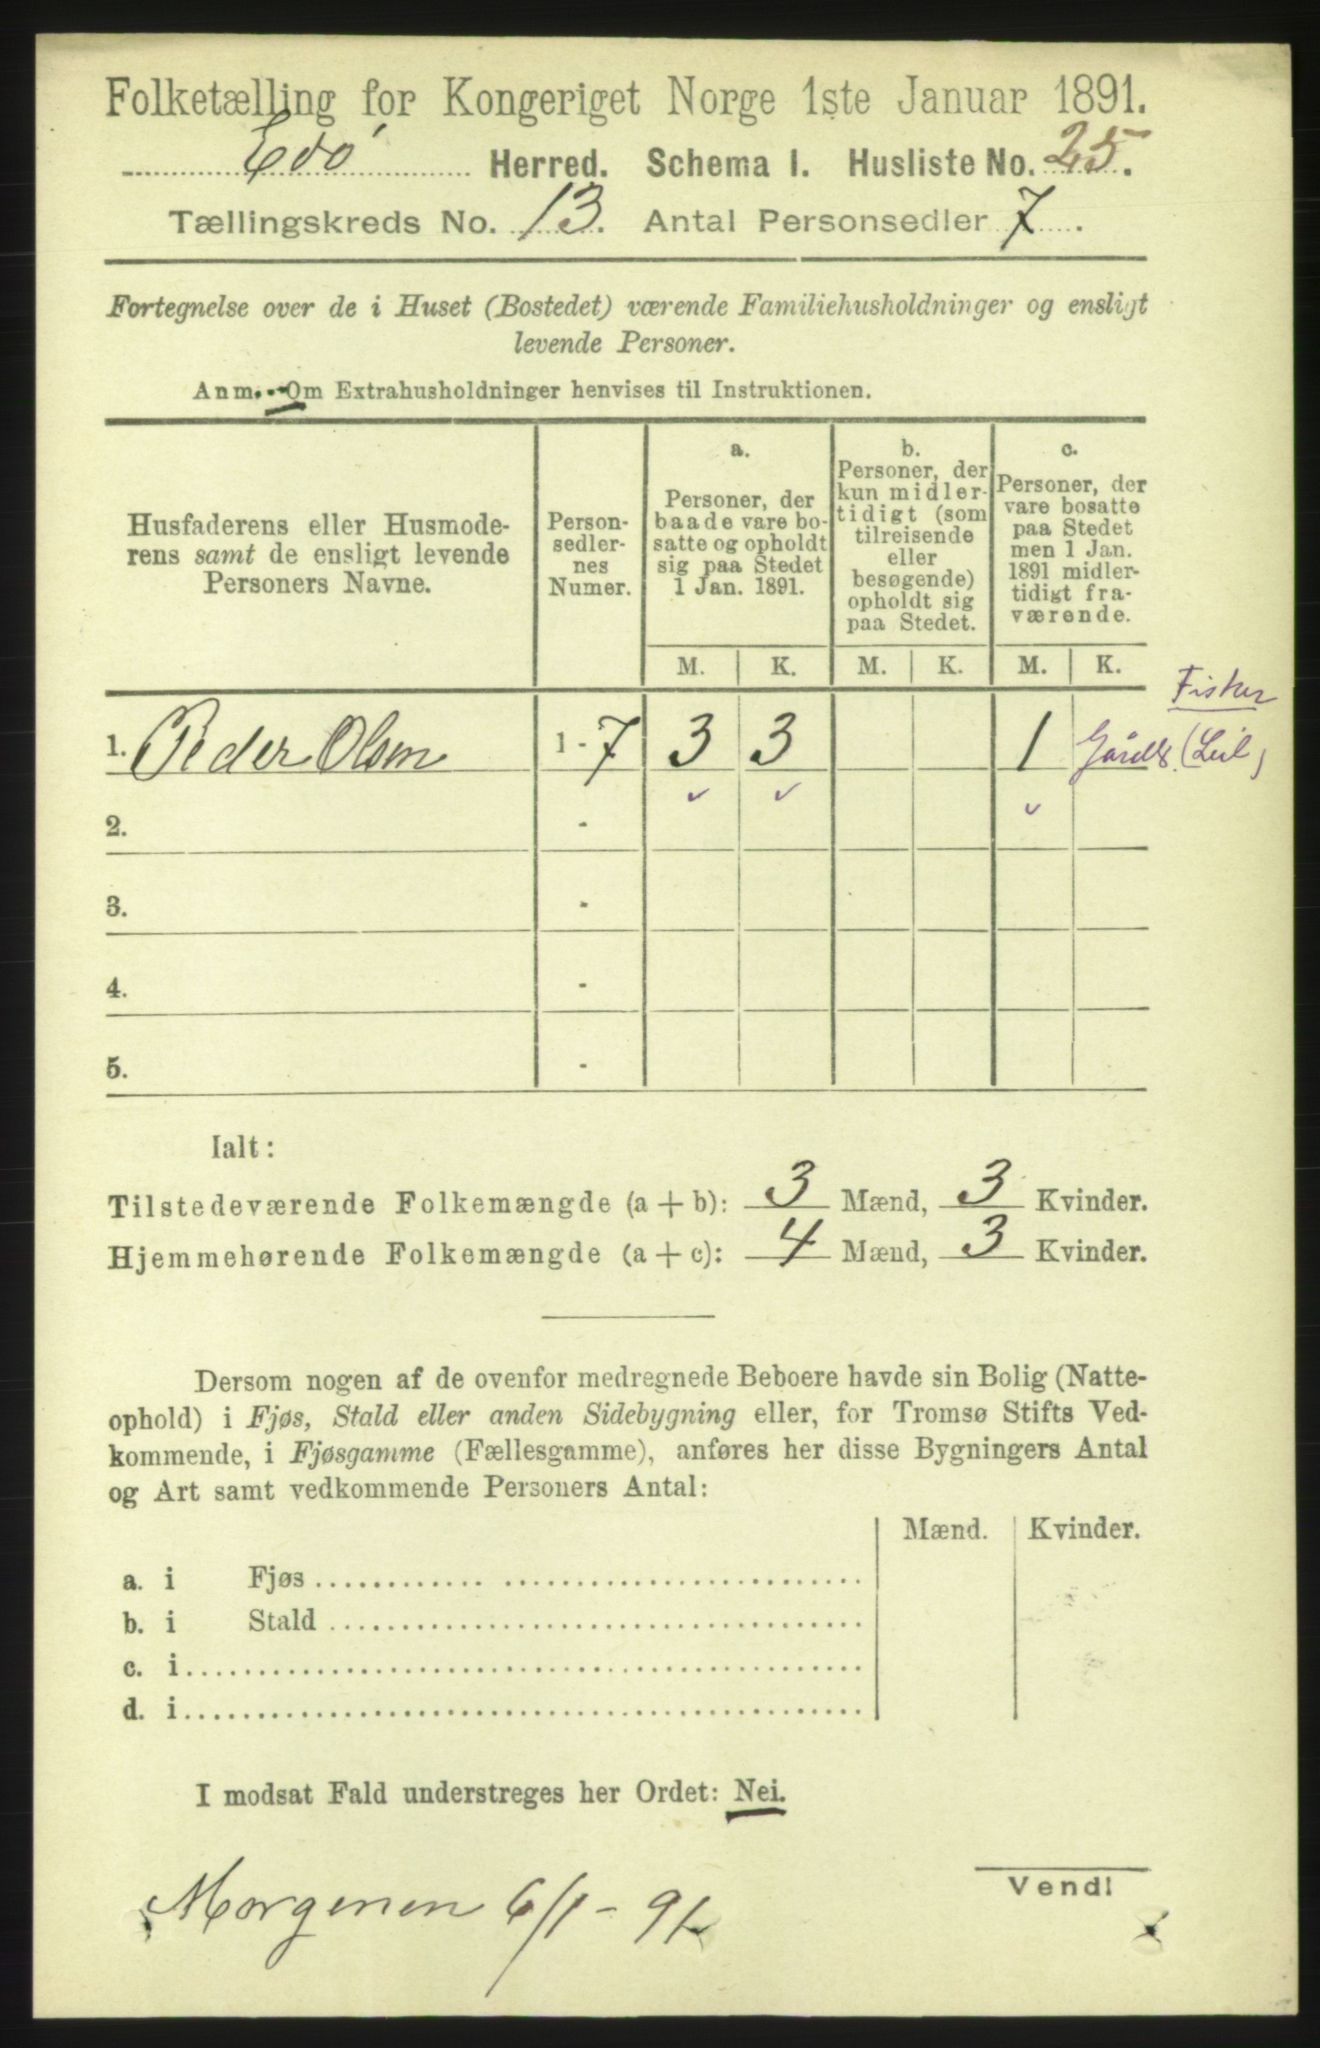 Folketælling for Kongeriget Norge 1ste Januar 1891.
Edø Herred. Schema I. Husliste No. 25.
Tællingskreds No. 13. Antal Personsedler 7.
Fortegnelse over de i Huset (Bostedet) værende Familiehusholdninger og ensligt
levende Personer.
Anm. Om Extrahusholdninger henvises til Instruktionen.
Husfaderens eller Husmode-
rens samt de ensligt levende
Personers Navne.
Person-
sedler-
nes
Numer.
a.
Personer, der
baade vare bo-
satte og opholdt
sig paa Stedet
1 Jan. 1891.
b.
Personer, der
kun midler-
tidigt (som
tilreisende
eller
besøgende)
opholdt sig
paa Stedet.
c.
Personer, der
vare bosatte
paa Stedet
men 1 Jan.
1891 midler-
tidigt fra-
værende.
M. K. M. K. M. K.
Fisker
1. Peder Olsen 1 - 7 3 3 1 Gårdb. (Leil)
2. -
3. -
4. -
5. -
Ialt:
Tilstedeværende Folkemængde (a + b): 3 Mænd, 3 Kvinder.
Hjemmehørende Folkemængde (a + c): 4 Mænd, 3 Kvinder.
Dersom nogen af de ovenfor medregnede Beboere havde sin Bolig (Natte-
ophold) i Fjøs, Stald eller anden Sidebygning eller, for Tromsø Stifts Ved-
kommende, i Fjøsgamme (Fællesgamme), anføres her disse Bygningers Antal
og Art samt vedkommende Personers Antal:
Mænd. Kvinder.
a. i Fjøs
b. i Stald
c. i
d. i
I modsat Fald understreges her Ordet: Nei.
Vend!
Morgenen 6/1 - 91